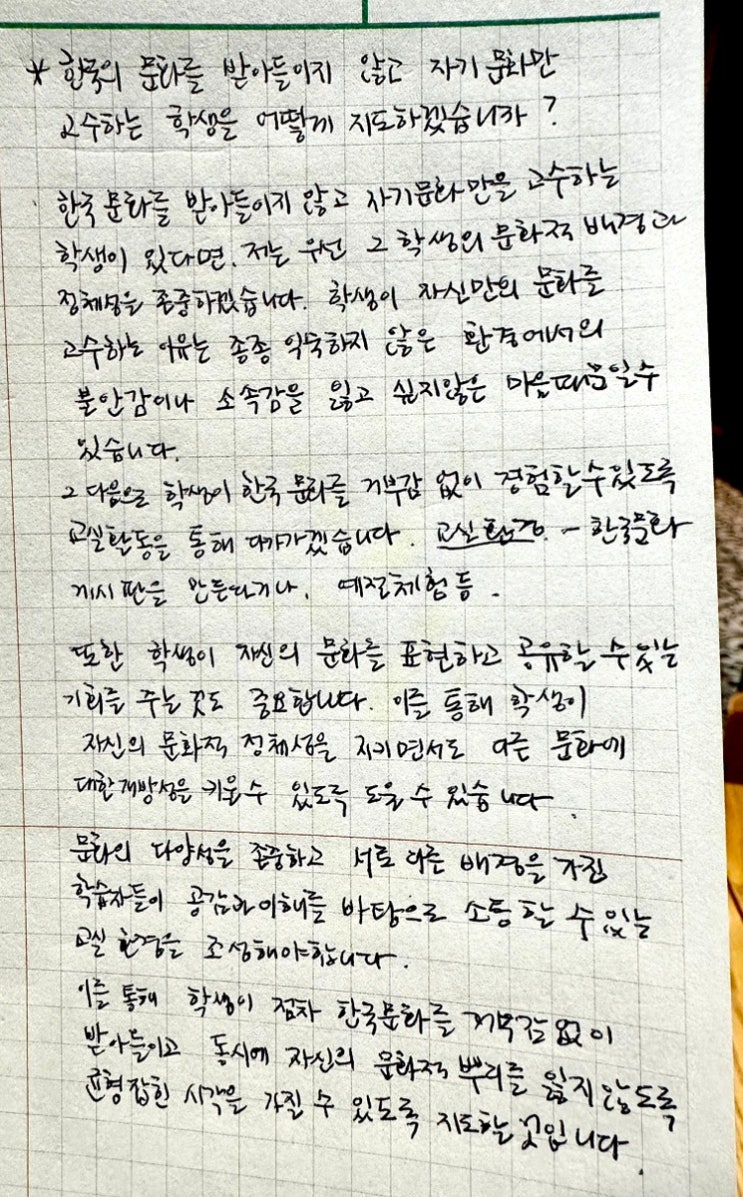 * 한국의 문화를 받아들이지 않고 자기 문화만
고수하는 학생을 어떻게 지도하겠습니까?
한국 문화를 받아들이지 않고 자기문화만을 고수하는
학생이 있다면, 저는 우선 그 학생의 문화적 배경과
정체성을 존중하겠습니다. 학생이 자신만의 문화를
고수하는 이유는 종종 익숙하지 않은 환경에서의
불안감이나 소속감을 잃고 싶지않은 마음때문일수
있습니다.
그 다음으로 학생이 한국 문화를 거부감 없이 경험할수있도록
교실활동을 통해 다가가겠습니다. 교실환경. - 한국문화
게시판을 만든다거나, 예절체험 등.
또한 학생이 자신의 문화를 표현하고 공유할 수 있는
기회를 주는 것도 중요합니다. 이를 통해 학생이
자신의 문화적 정체성을 지키면서도 다른 문화에
대한개방성을 키울수 있도록 도울 수 있습니다.
문화의 다양성을 존중하고 서로 다른 배경을 가진
학습자들이 공감과 이해를 바탕으로 소통할 수 있는
교실 환경을 조성해야합니다.
이를 통해 학생이 점차 한국문화를 거부감 없이
받아들이고 동시에 자신의 문화적 뿌리를 잃지 않도록
균형잡힌 시각을 가질 수 있도록 지도할 것입니다.